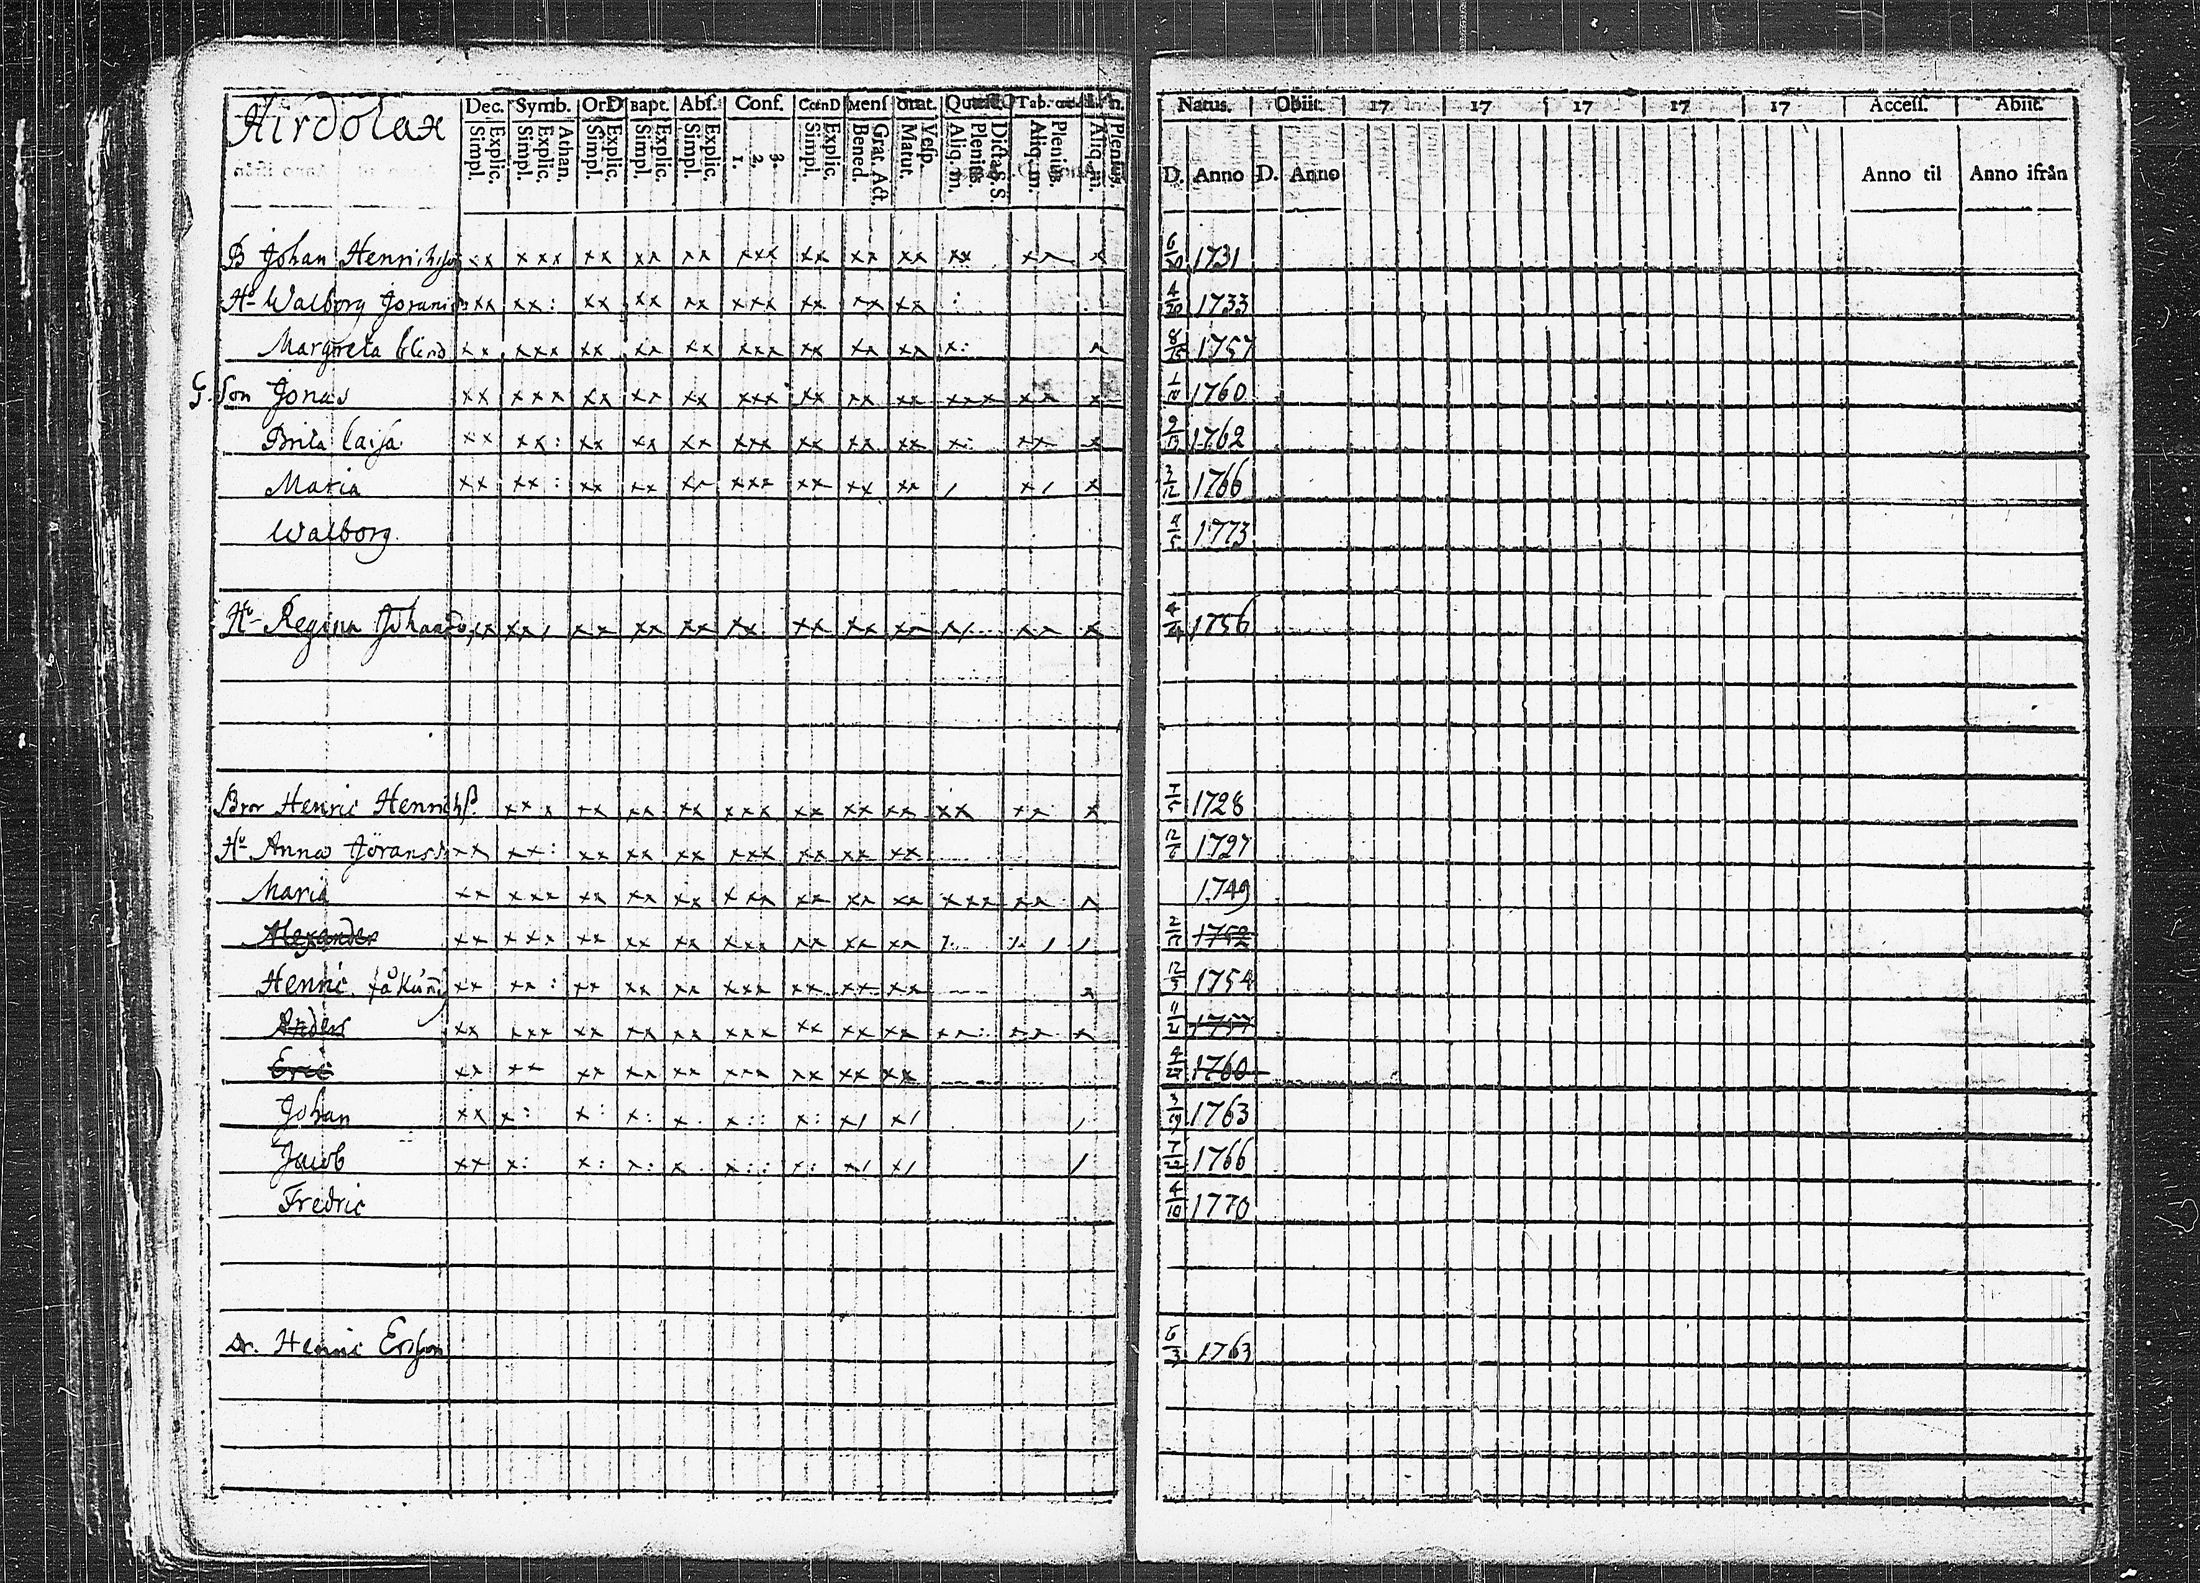 Hirdolax Dec. Symb. OrD Bapt. Abs. Conf. CœnD Mens orat. Tab. Natus. Obiit. 17 17 17 17 17 Access. Abiit.
Simpl. Explic. Simpl. Explic. Athan. Simpl. Explic. Simpl. Explic. Simpl. Explic. 1. 2. 3. Simpl. Explic. Bened. Grat. Act. Matut. Vesp. Aliq. m. Plenius. Dicta S. S. Aliq. m. Plenius. Aliq. m. Plenius. D. Anno D. Anno Anno til Anno ifrån
B Johan Henrichsson xx xxx xx xx xx xxx xx xx xx xx xx x 6/20 1731
Hu Walborg xx xx: xx xx xx xxx xx xx xx : 4/20 1733
Margreta blind xx xxx xx xx xx xxx xx xx xx x: x 8/15 1757
Son Jonas xx xxx xx xx xx xxx xx xx xx xxx xx x 1760
Brita Caisa xx xx: xx xx xx xxx xx xx xx x: xx x 9/13 1762
Maria xx xx: xx xx xx xxx xx xx xx / x/ x 3/12 1766
Walborg 1773
Hu Regina xx xx/ xx xx xx xx xx xx xx x/ xx x 4/24 1756
Bror Henric Henrichss. xxx xx xx xx xxx xx xx xx xx xx x 1728
Hu Anna Jöransd. xx xx: xx xx xx xxx xx xx xx 12/6 1727
Maria xx xxx xx xx xx xxx xx xx xx xxx xx x 1749
Alexander xx xxx xx xx xx xxx xx xx xx 1752
Henric fåkunig xx xx: xx xx xx xxx xx xx xx x 12/5 1754
Anders xx xxx xx xx xx xxx xx xx xx xx: xx x 11/21 1757
Eric xx xx xx xx xx xxx xx xx xx 1760
Johan xx x: x: x: x. x:: x: x/ x/ / 3/19 1763
Jacob xx x: x: x: x. x:: x: x/ x/ / 1766
Fredric 4/10 1770
Dr. Henric Ersson 6/3 1763